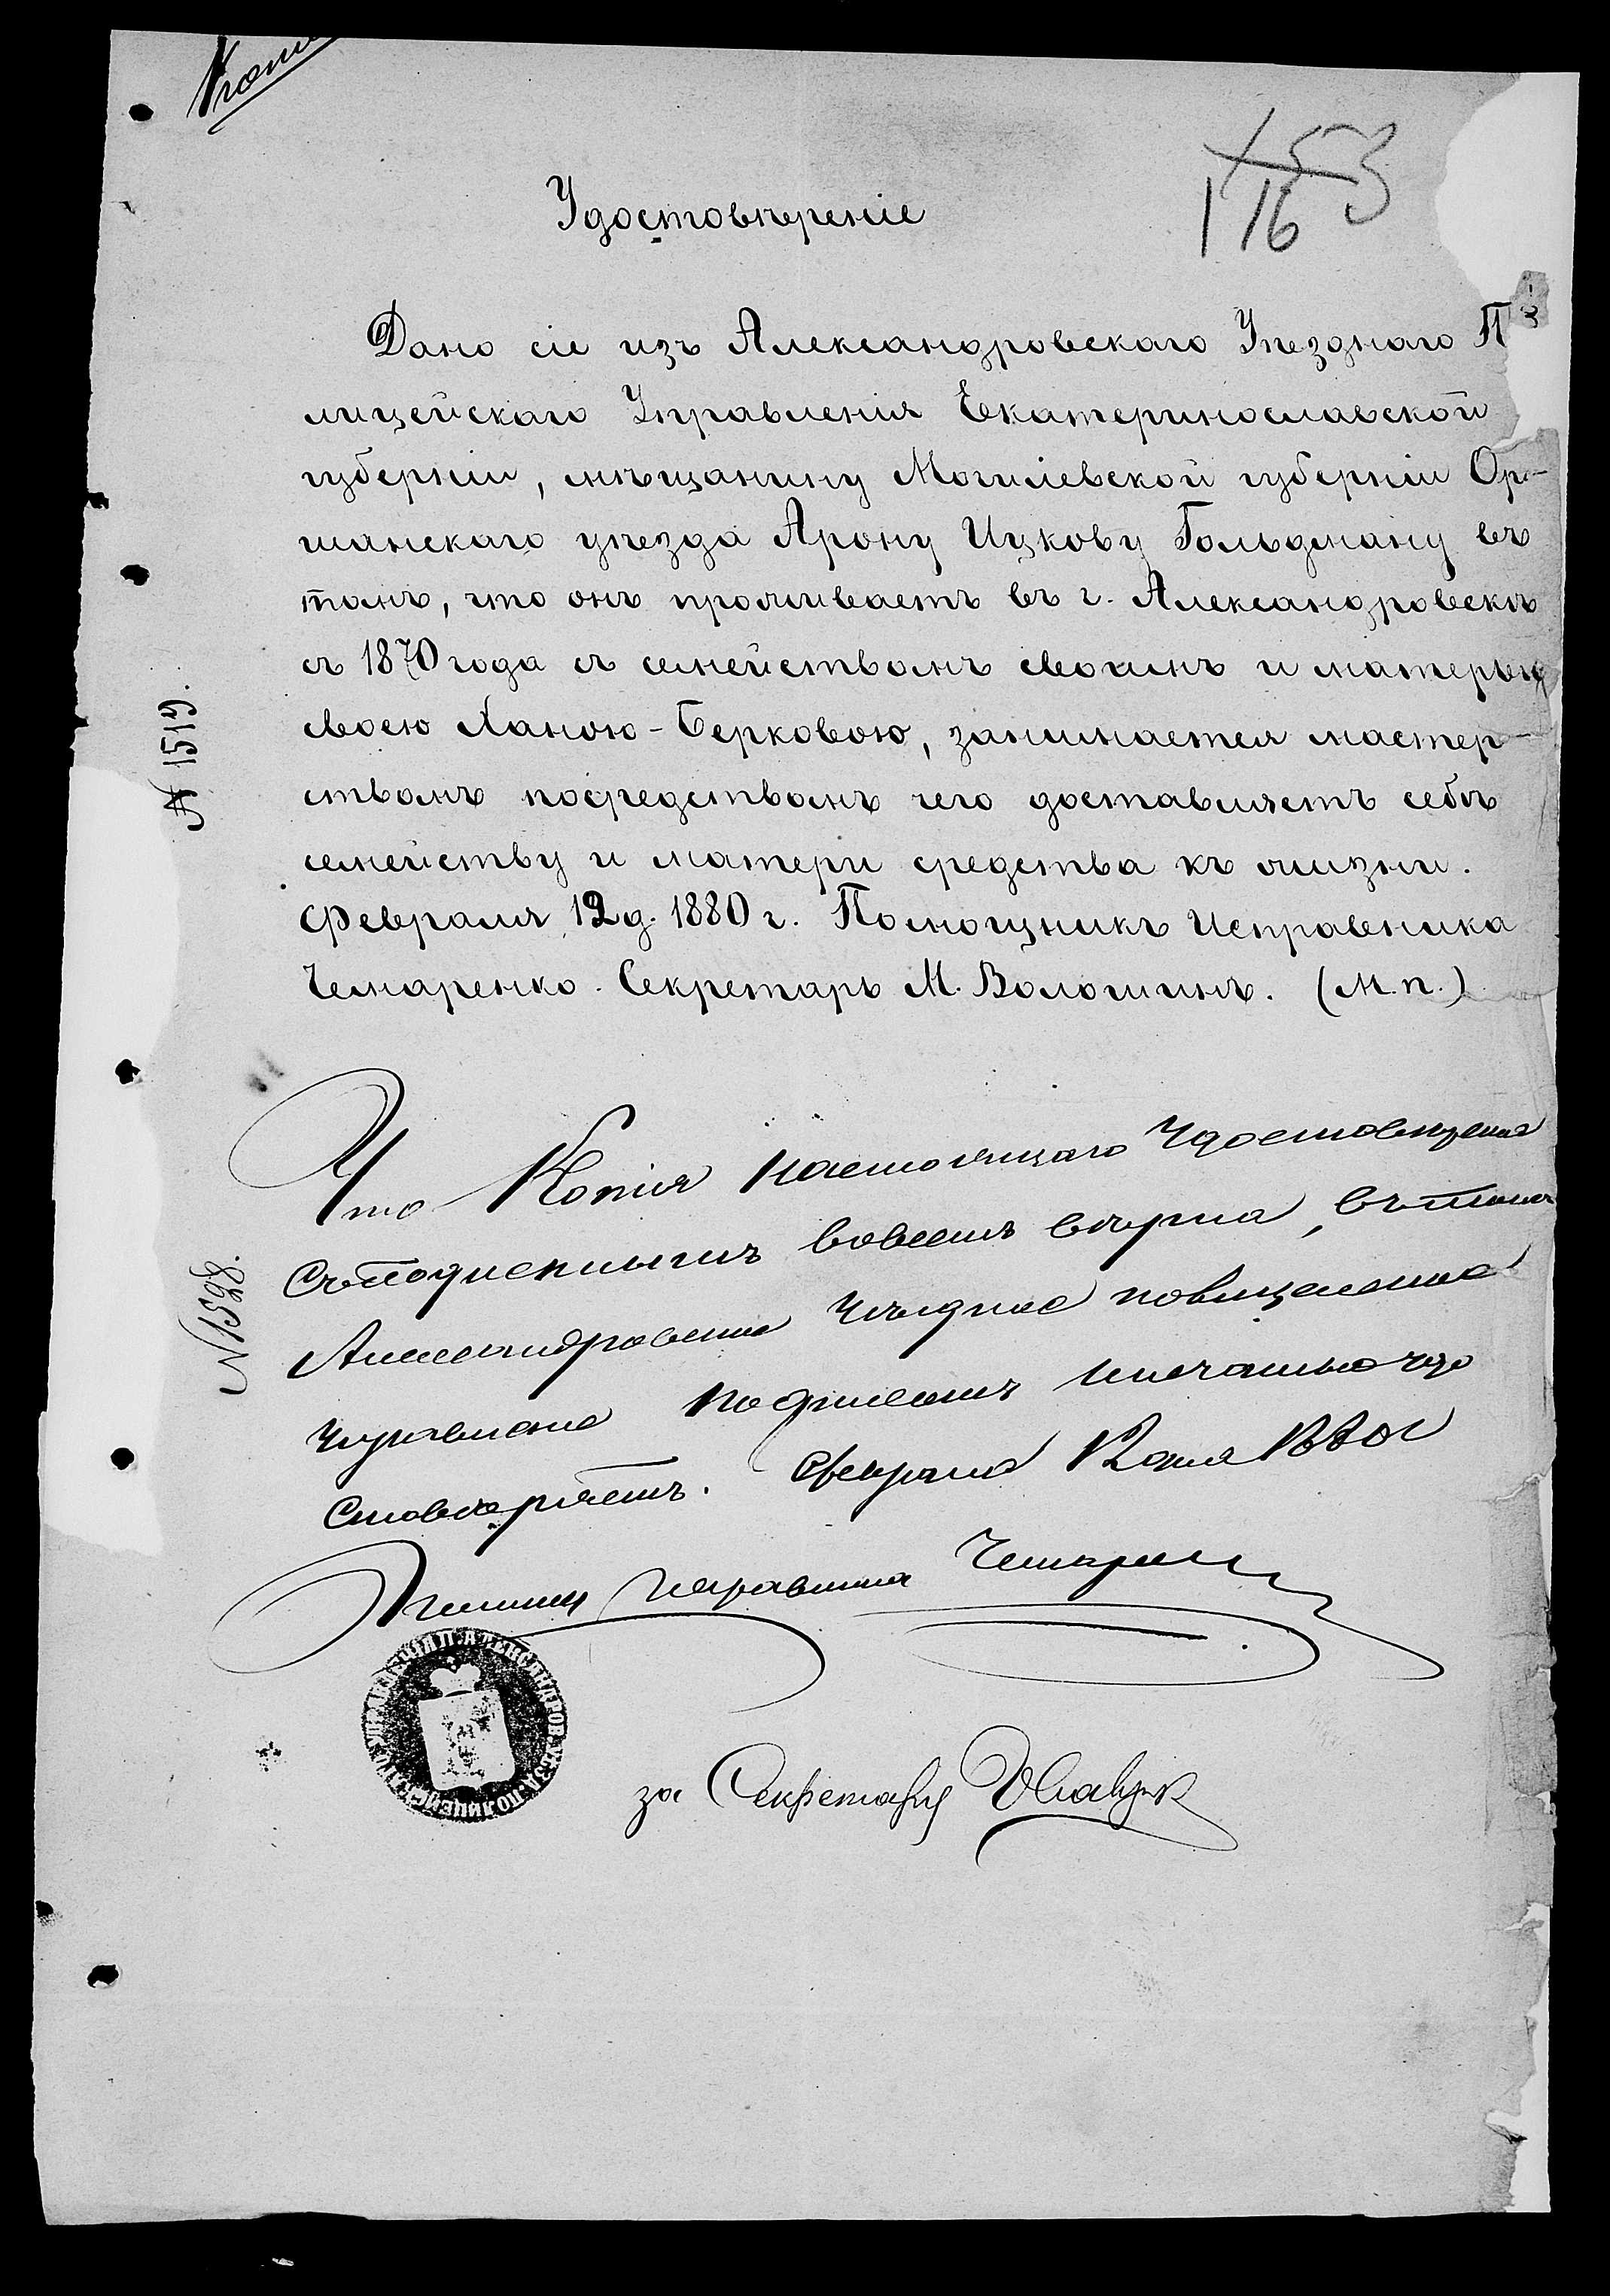 Копі
153
116
Удостовѣреніе
Дано сіе изъ Александровскаго Уѣзднаго П
лицейскаго Управленія Екатеринославской
губерніи, мѣщанину Могилевской губерніи Ор-
шанскаго уѣзда Арону Ицкову Гольдману въ
томъ, что онъ проживаетъ въ г. Александровскѣ
съ 1870 года съ семействомъ своимъ и матерью
своею Ханою-Берковою, занимается мастер-
ствомъ посредствомъ чего доставляетъ себѣ
семейству и матери средства къ жизни.
Февраля 12 д. 1880 г. Помощникъ Исправника
Чемаренко. Секретарь М. Волошинъ. (М.п.)
№ 1519.
Что Копія настоящаго Удостовѣренія
съ подлиннымъ вовсемъ вѣрна, въ томъ
Александровское Уѣздное полицейское
Управленіе подписомъ и печатью удо
стовѣряетъ. Февраля 12 дня 1880 г
№ 1528.
Помощн Исправника Чемарен
за Секретаря